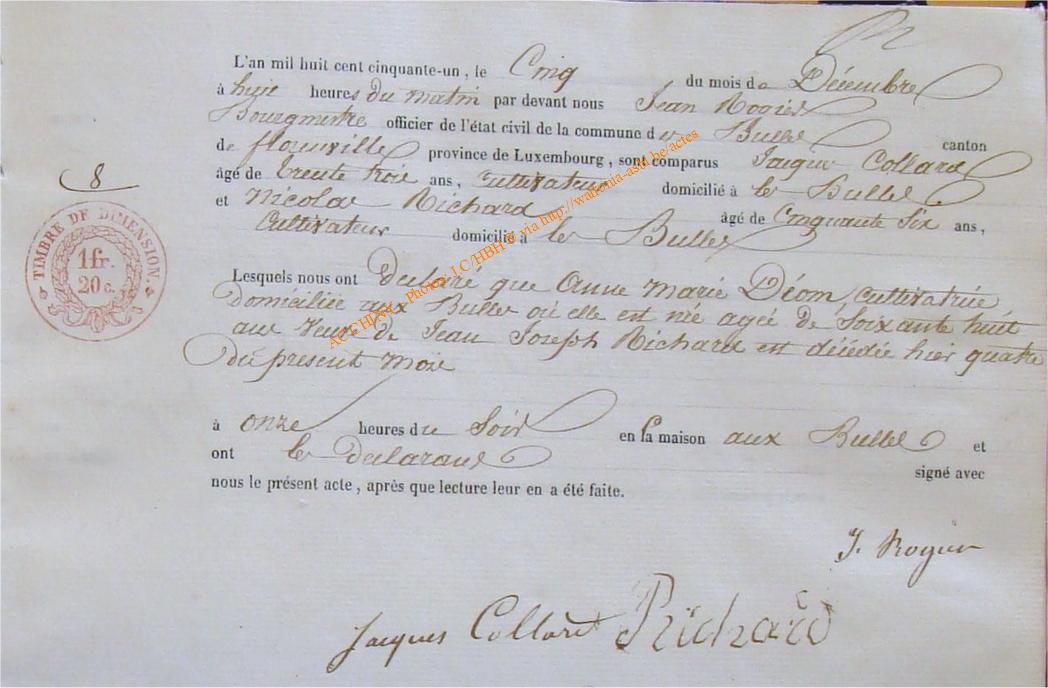 L'an mil huit cent cinquante-un, le Cinq du mois de Décembre
à huit heures du matin par devant nous Jean Rogier
Bourgmestre officier de l'état civil de la commune des Bulles canton
de florenville province de Luxembourg, sont comparus Jacques Collard
âgé de trente trois ans, Cultivateur domicilié à les Bulles
et Nicolas Richard âgé de Cinquante Six ans,
Cultivateur domicilié à les Bulles
8
TIMBRE DE DIMENSION.
1 fr.
20 c.
Lesquels nous ont déclaré que Anne Marie Déom, Cultivatrice
domiciliée aux Bulles où elle est née agée de Soixante huit
ans Veuve de Jean Joseph Richard est décédée hier quatre
du présent mois
à onze heures du Soir en la maison aux Bulles et
ont les déclarans signé avec
nous le présent acte, après que lecture leur en a été faite.
J. Rogier
Jacques Collard Richard
via http://wallonia-asbl.be/actes